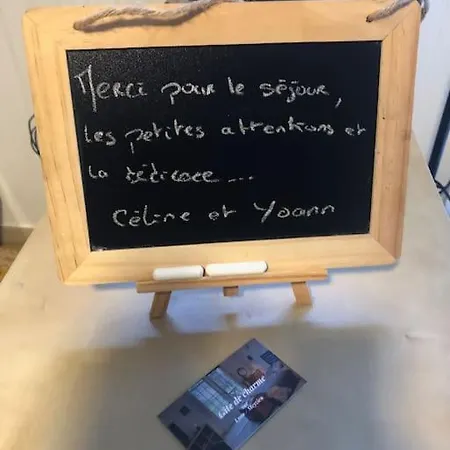 Merci pour le séjour,
les petites attentions et
la dédicace ...
Céline et Yoann
Gîte de charme